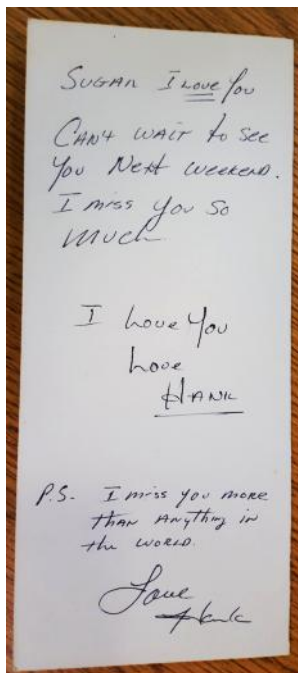 Sugar I love You
Can't wait to see
You Next weekend.
I miss you so
much
I Love You
Love
Hank
P.S. I miss you more
than anything in
the world.
Love
Hank